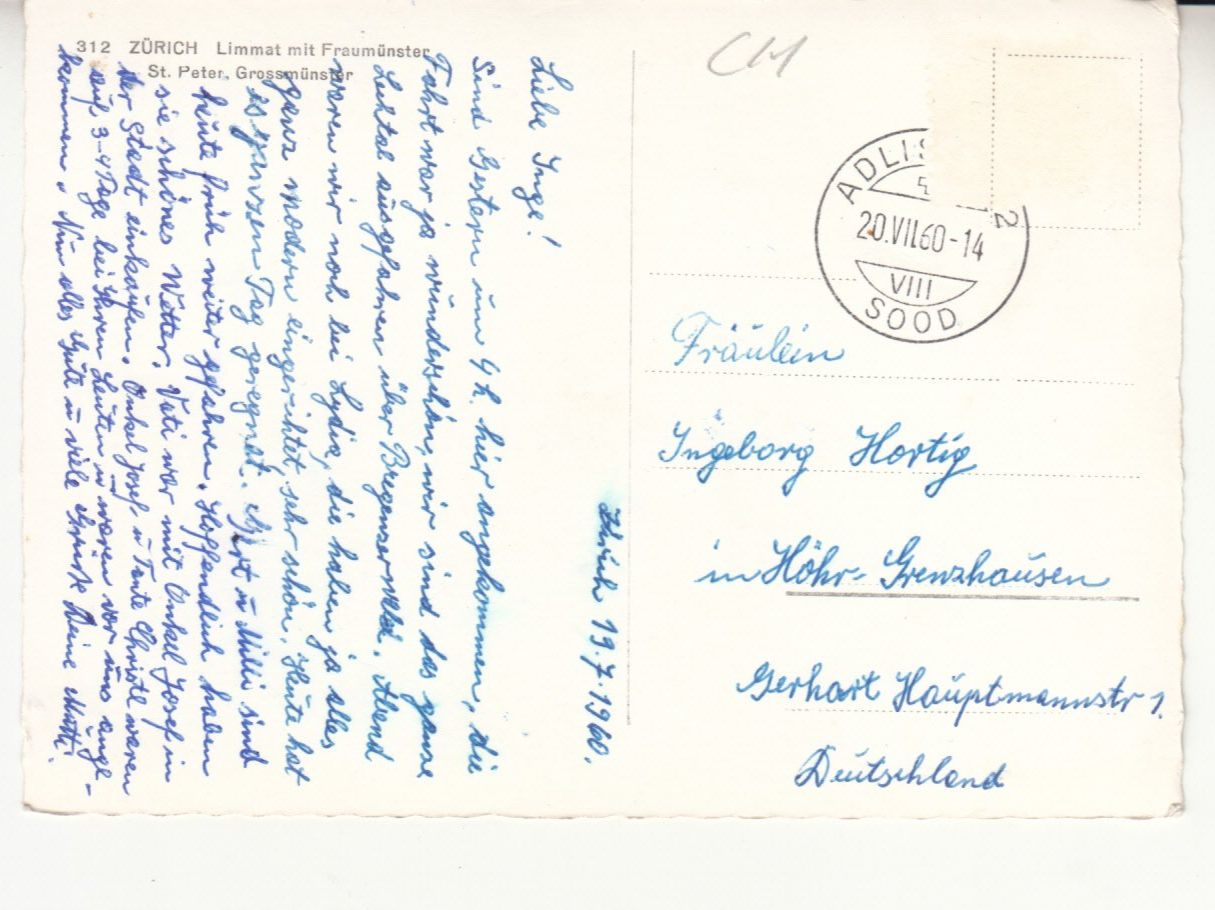 312 ZÜRICH Limmat mit Fraumünster
St. Peter, Grossmünster
Zürich 19.7.1960.
Liebe Inge!
Sind Gestern um 4 h. hier angekommen, die
Fahrt war ja wunderschön, wir sind das ganze
ausgefahren über Bregenzerwald. Abend
waren wir noch bei Lydia, die haben ja alles
ganz modern eingerichtet sehr schön. Heute hat
es ganzen Tag geregnet. Gert u Milli sind
heute früh weiter gefahren. Hoffendlich haben
sie schönes Wetter. Vati war mit Onkel Josef in
der Stadt einkaufen. Onkel Josef u Tante Christl waren
auf 3-4 Tage bei Ihren Leuten u waren vor uns ange-
kommen. Nun alles Gute u viele Grüße Deine Mutti.
CH
ADLIS 2
20.VII.60-14
VIII
SOOD
Fräulein
Ingeborg Hortig
in Höhr-Grenzhausen
Gerhart Hauptmannstr 1.
Deutschland